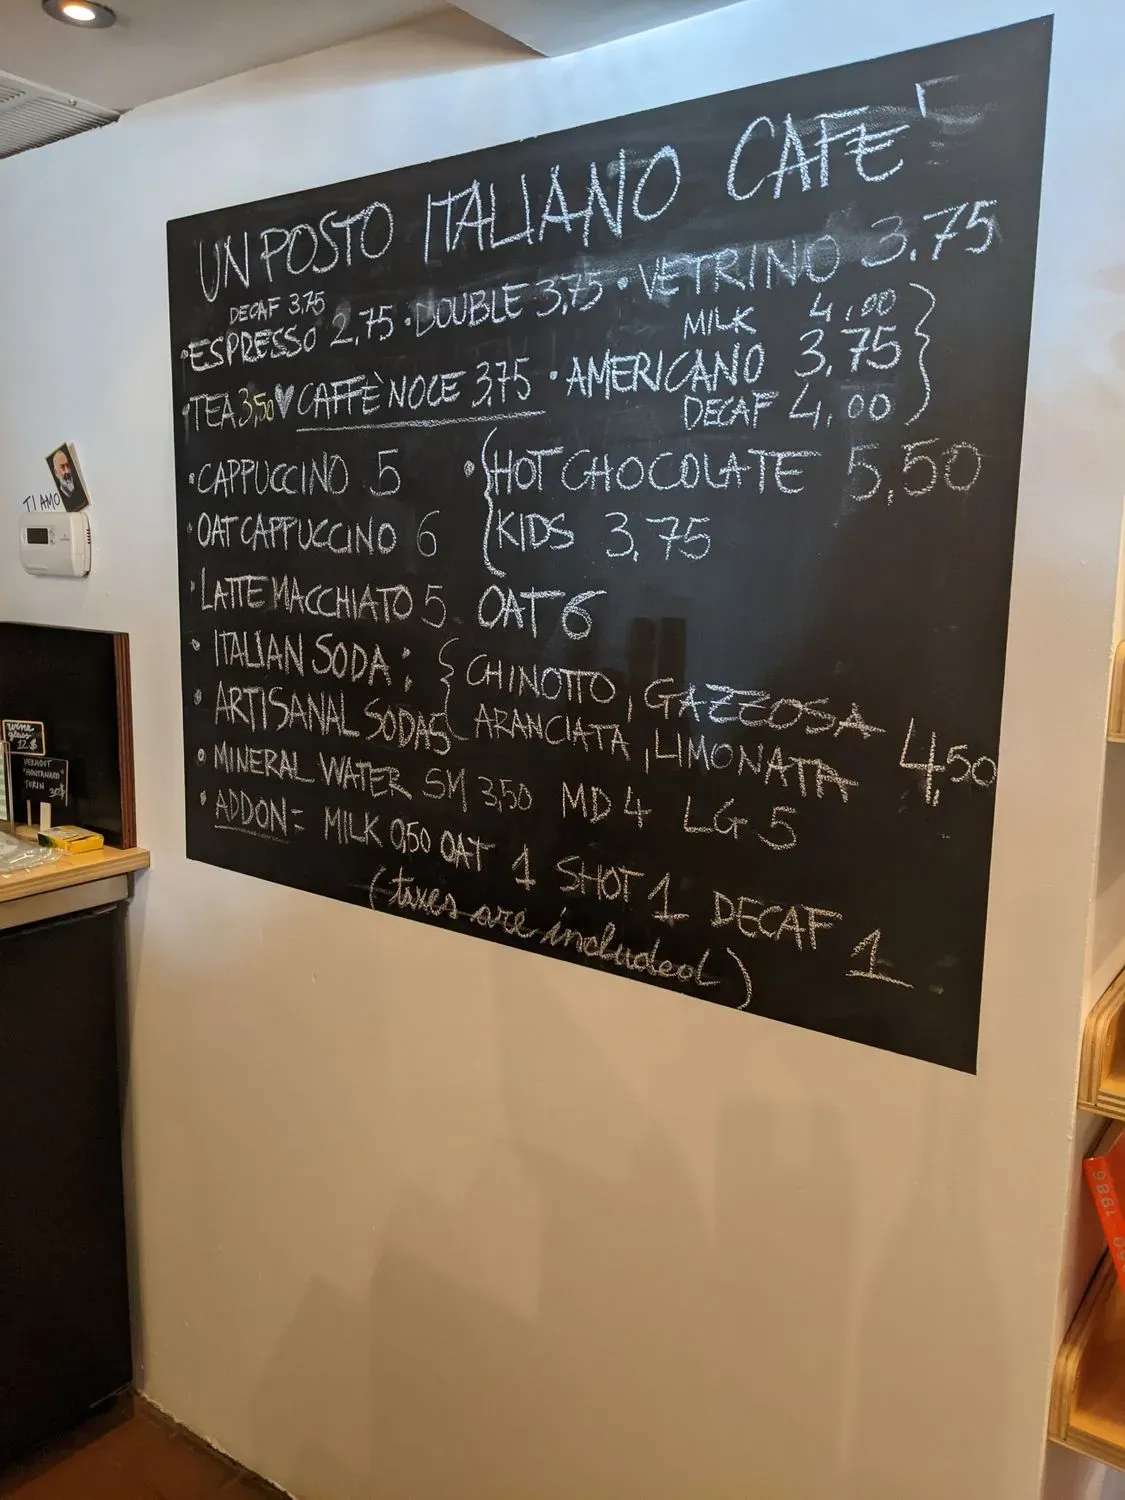 UN POSTO ITALIANO CAFE'
DECAF 3,75
•ESPRESSO 2,75 • DOUBLE 3,75 • VETRINO 3.75
MILK 4,00
•TEA 3,50 ♥ CAFFÈ NOCE 3,75 • AMERICANO 3,75
DECAF 4,00
•CAPPUCCINO 5 • HOT CHOCOLATE 5,50
•OAT CAPPUCCINO 6 KIDS 3,75
•LATTE MACCHIATO 5 OAT 6
•ITALIAN SODA: { CHINOTTO, GAZZOSA
•ARTISANAL SODAS ARANCIATA, LIMONATA 4,50
•MINERAL WATER SM 3,50 MD 4 LG 5
•ADDON= MILK 0,50 OAT 1 SHOT 1 DECAF 1
(taxes are included)
TI AMO
wine
glass
12$
TORIN 30$
1986